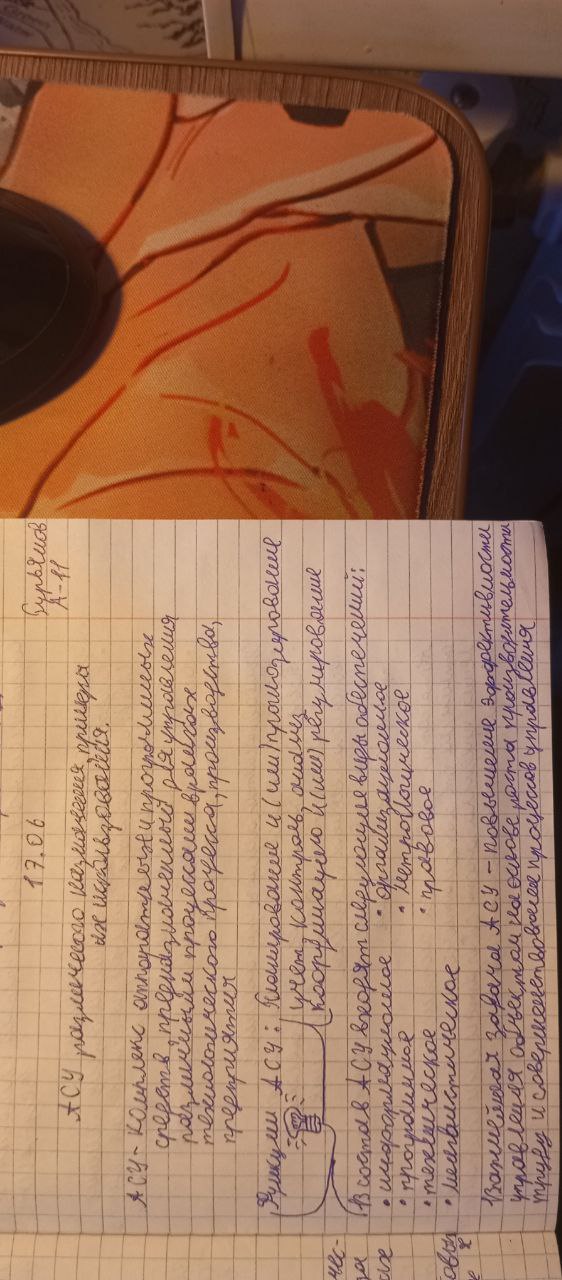 Бурьянов
А-11
17.06
АСУ различного назначения примеры
их использования.
АСУ - комплекс аппаратных и программных
средств, предназначенный для управления
различными процессами в рамках
технологического процесса, производства,
предприятия
Функции АСУ: Планирование и (или) прогнозирование
учет, контроль, анализ
Координацию и (или) регулирование
В состав АСУ входят следующие виды обеспечений:
• информационное • организационное
• программное • метрологическое
• техническое • правовое
• лингвистическое
Важнейшая задача АСУ - повышение эффективности
управления объектом на основе роста производительности
труда и совершенствование процессов управления